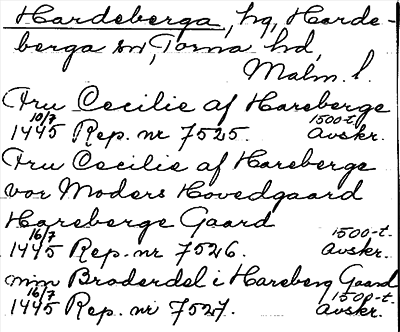 Hardeberga, hg, Harde-
berga sn, Torna hd,
Malm. l.
Fru Cecilie af Hareberge
10/7 1445 Rep. nr 7525. 1500-t. avskr.
Fru Cecilie af Hareberge
vor Moders Hovedgaard
Hareberge Gaard
16/7 1445 Rep. nr 7526. 1500-t. avskr.
min Broderdel i Hareberg Gaard
16/7 1445 Rep. nr 7527. 1500-t. avskr.